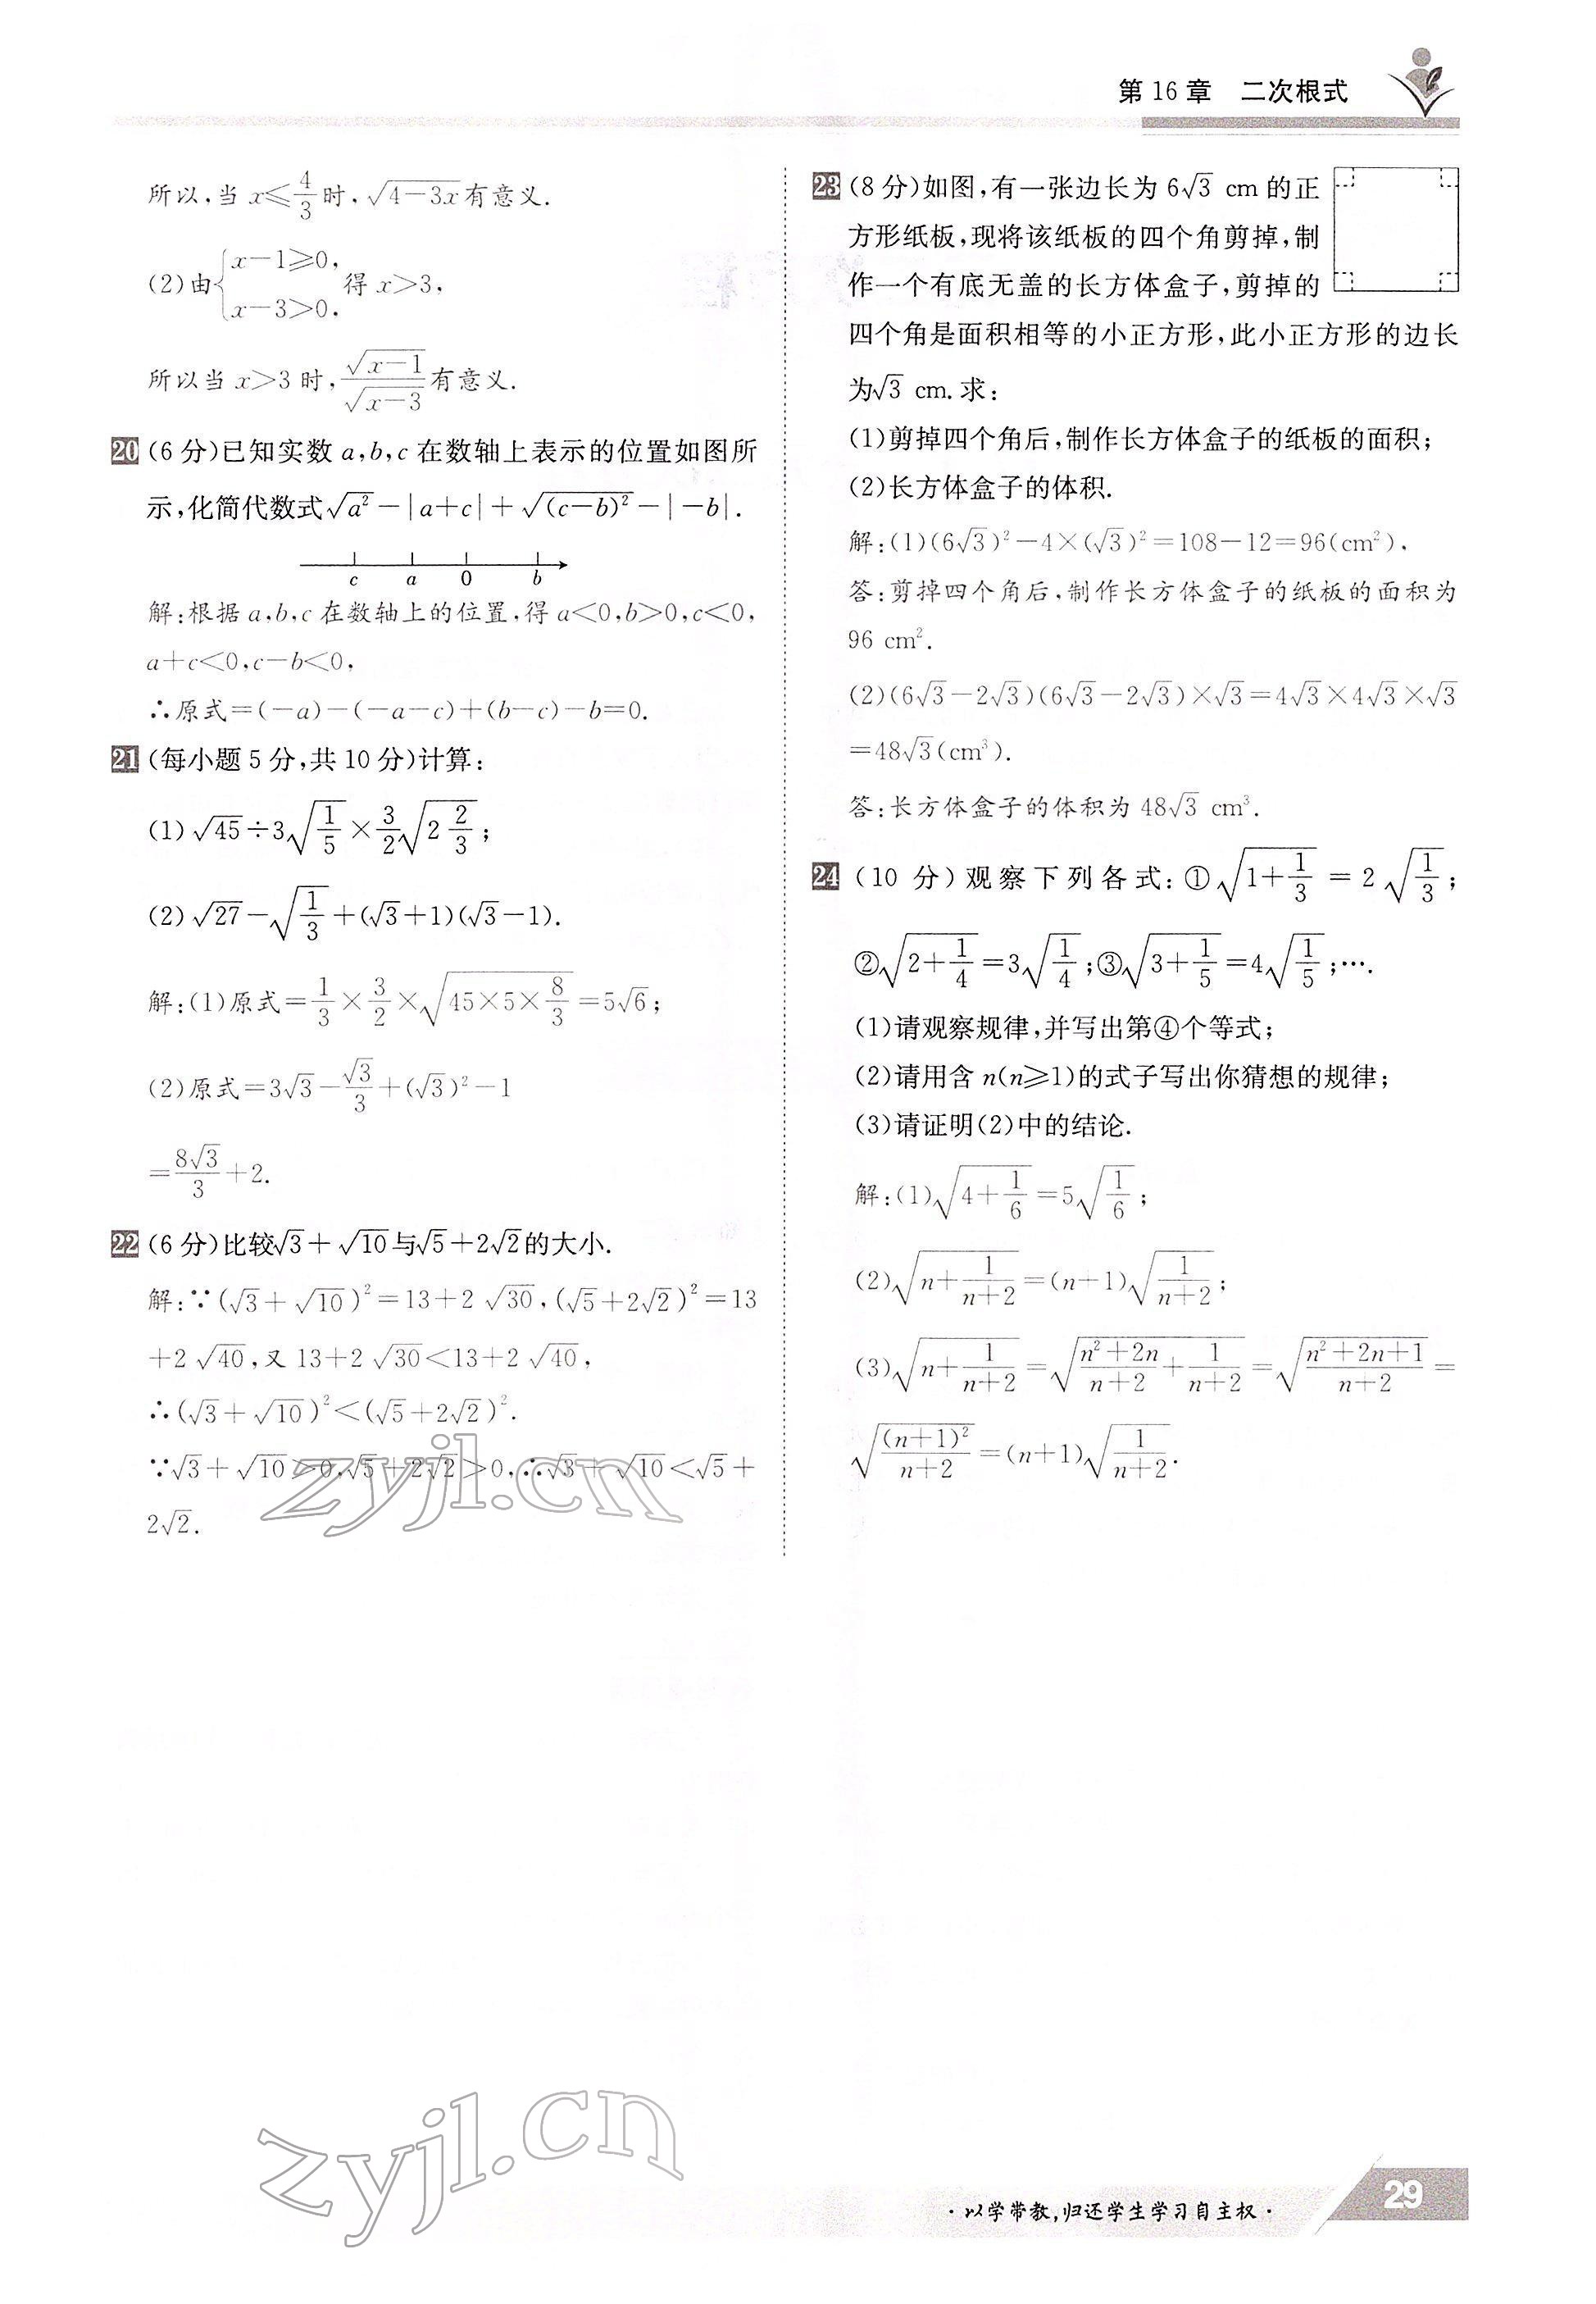 第 16 章 二次根式
所以,当 x≤4/3 时,√(4-3x)有意义.
(2)由{x-1≥0, x-3>0. 得 x>3,
所以当 x>3 时,√(x-1)/√(x-3)有意义.
20 (6 分)已知实数 a,b,c 在数轴上表示的位置如图所
示,化简代数式√(a²)-|a+c|+√((c-b)²)-|-b|.
c a 0 b
解:根据 a,b,c 在数轴上的位置,得 a<0,b>0,c<0,
a+c<0,c-b<0,
∴原式=(-a)-(-a-c)+(b-c)-b=0.
21 (每小题 5 分,共 10 分)计算:
(1)√45÷3√(1/5)×3/2√(2 2/3);
(2)√27-√(1/3)+(√3+1)(√3-1).
解:(1)原式=1/3×3/2×√(45×5×8/3)=5√6;
(2)原式=3√3-√3/3+(√3)²-1
=8√3/3+2.
22 (6 分)比较√3+√10与√5+2√2的大小.
解:∵(√3+√10)²=13+2√30,(√5+2√2)²=13
+2√40,又 13+2√30<13+2√40,
∴(√3+√10)²<(√5+2√2)².
∵√3+√10>0,√5+2√2>0,∴√3+√10<√5+
2√2.
23 (8 分)如图,有一张边长为 6√3 cm 的正
方形纸板,现将该纸板的四个角剪掉,制
作一个有底无盖的长方体盒子,剪掉的
四个角是面积相等的小正方形,此小正方形的边长
为√3 cm.求:
(1)剪掉四个角后,制作长方体盒子的纸板的面积;
(2)长方体盒子的体积.
解:(1)(6√3)²-4×(√3)²=108-12=96(cm²),
答:剪掉四个角后,制作长方体盒子的纸板的面积为
96 cm².
(2)(6√3-2√3)(6√3-2√3)×√3=4√3×4√3×√3
=48√3(cm³).
答:长方体盒子的体积为 48√3 cm³.
24 (10 分)观察下列各式:①√(1+1/3)=2√(1/3);
②√(2+1/4)=3√(1/4);③√(3+1/5)=4√(1/5);….
(1)请观察规律,并写出第④个等式;
(2)请用含 n(n≥1)的式子写出你猜想的规律;
(3)请证明(2)中的结论.
解:(1)√(4+1/6)=5√(1/6);
(2)√(n+1/(n+2))=(n+1)√(1/(n+2));
(3)√(n+1/(n+2))=√((n²+2n)/(n+2)+1/(n+2))=√((n²+2n+1)/(n+2))=
√((n+1)²/(n+2))=(n+1)√(1/(n+2)).
zyjl.cn
zyjl.cn
·以学带教,归还学生学习自主权·
29